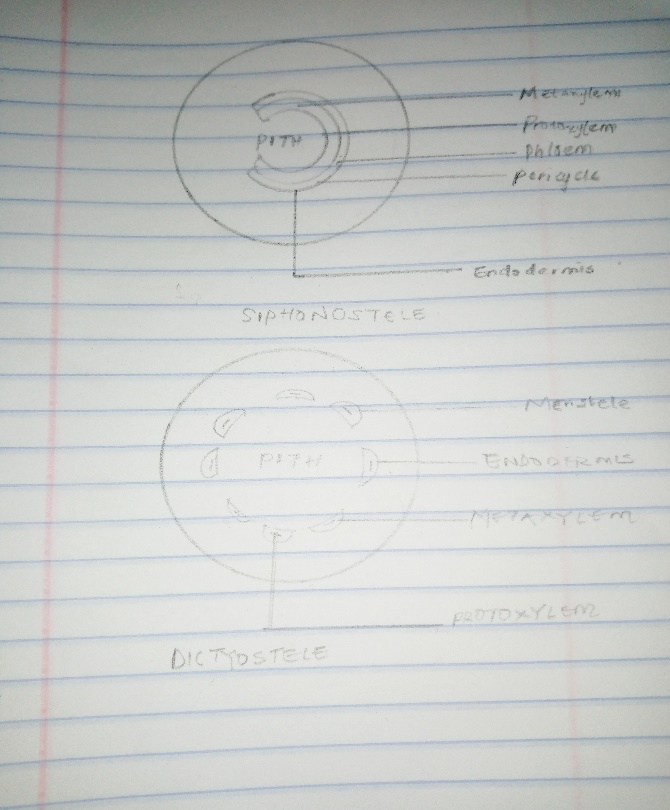 Metaxylem
PITH
Protoxylem
Phloem
pericycle
Endodermis
SIPHONOSTELE
Meristele
PITH
ENDODERMIS
METAXYLEM
PROTOXYLEM
DICTYOSTELE